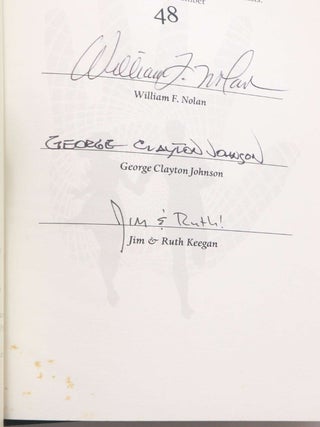 48
William F. Nolan
William F. Nolan
GEORGE CLAYTON JOHNSON
George Clayton Johnson
Jim & Ruth!
Jim & Ruth Keegan